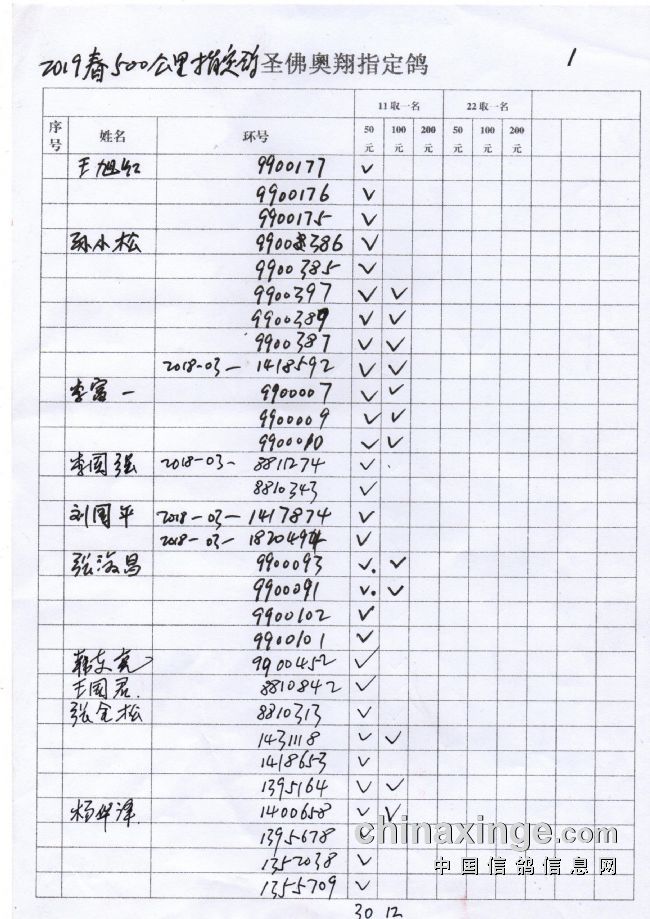 2019春500公里指定鸽圣佛奥翔指定鸽 1
11取一名 22取一名
序号 姓名 环号 50元 100元 200元 50元 100元 200元
王旭红 9900177 ✓
9900176 ✓
9900175 ✓
孙小松 9900386 ✓
9900385 ✓
9900397 ✓ ✓
9900389 ✓ ✓
9900387 ✓ ✓
2018-03-1418592 ✓ ✓
李富一 9900007 ✓ ✓
9900009 ✓ ✓
9900010 ✓ ✓
李国强 2018-03-8811274 ✓
8810343 ✓
刘国平 2018-03-1417874 ✓
2018-03-1820494 ✓
张海昌 9900093 ✓ ✓
9900091 ✓ ✓
9900102 ✓
9900101 ✓
韩东亮 9900452 ✓
王国君 8810842 ✓
张全松 8810313 ✓
1431118 ✓ ✓
1418653 ✓
1395164 ✓ ✓
杨华泽 1400658 ✓ ✓
1395678 ✓
1352038 ✓
1355709 ✓
30 12
chinaxinge.com
中国信鸽信息网